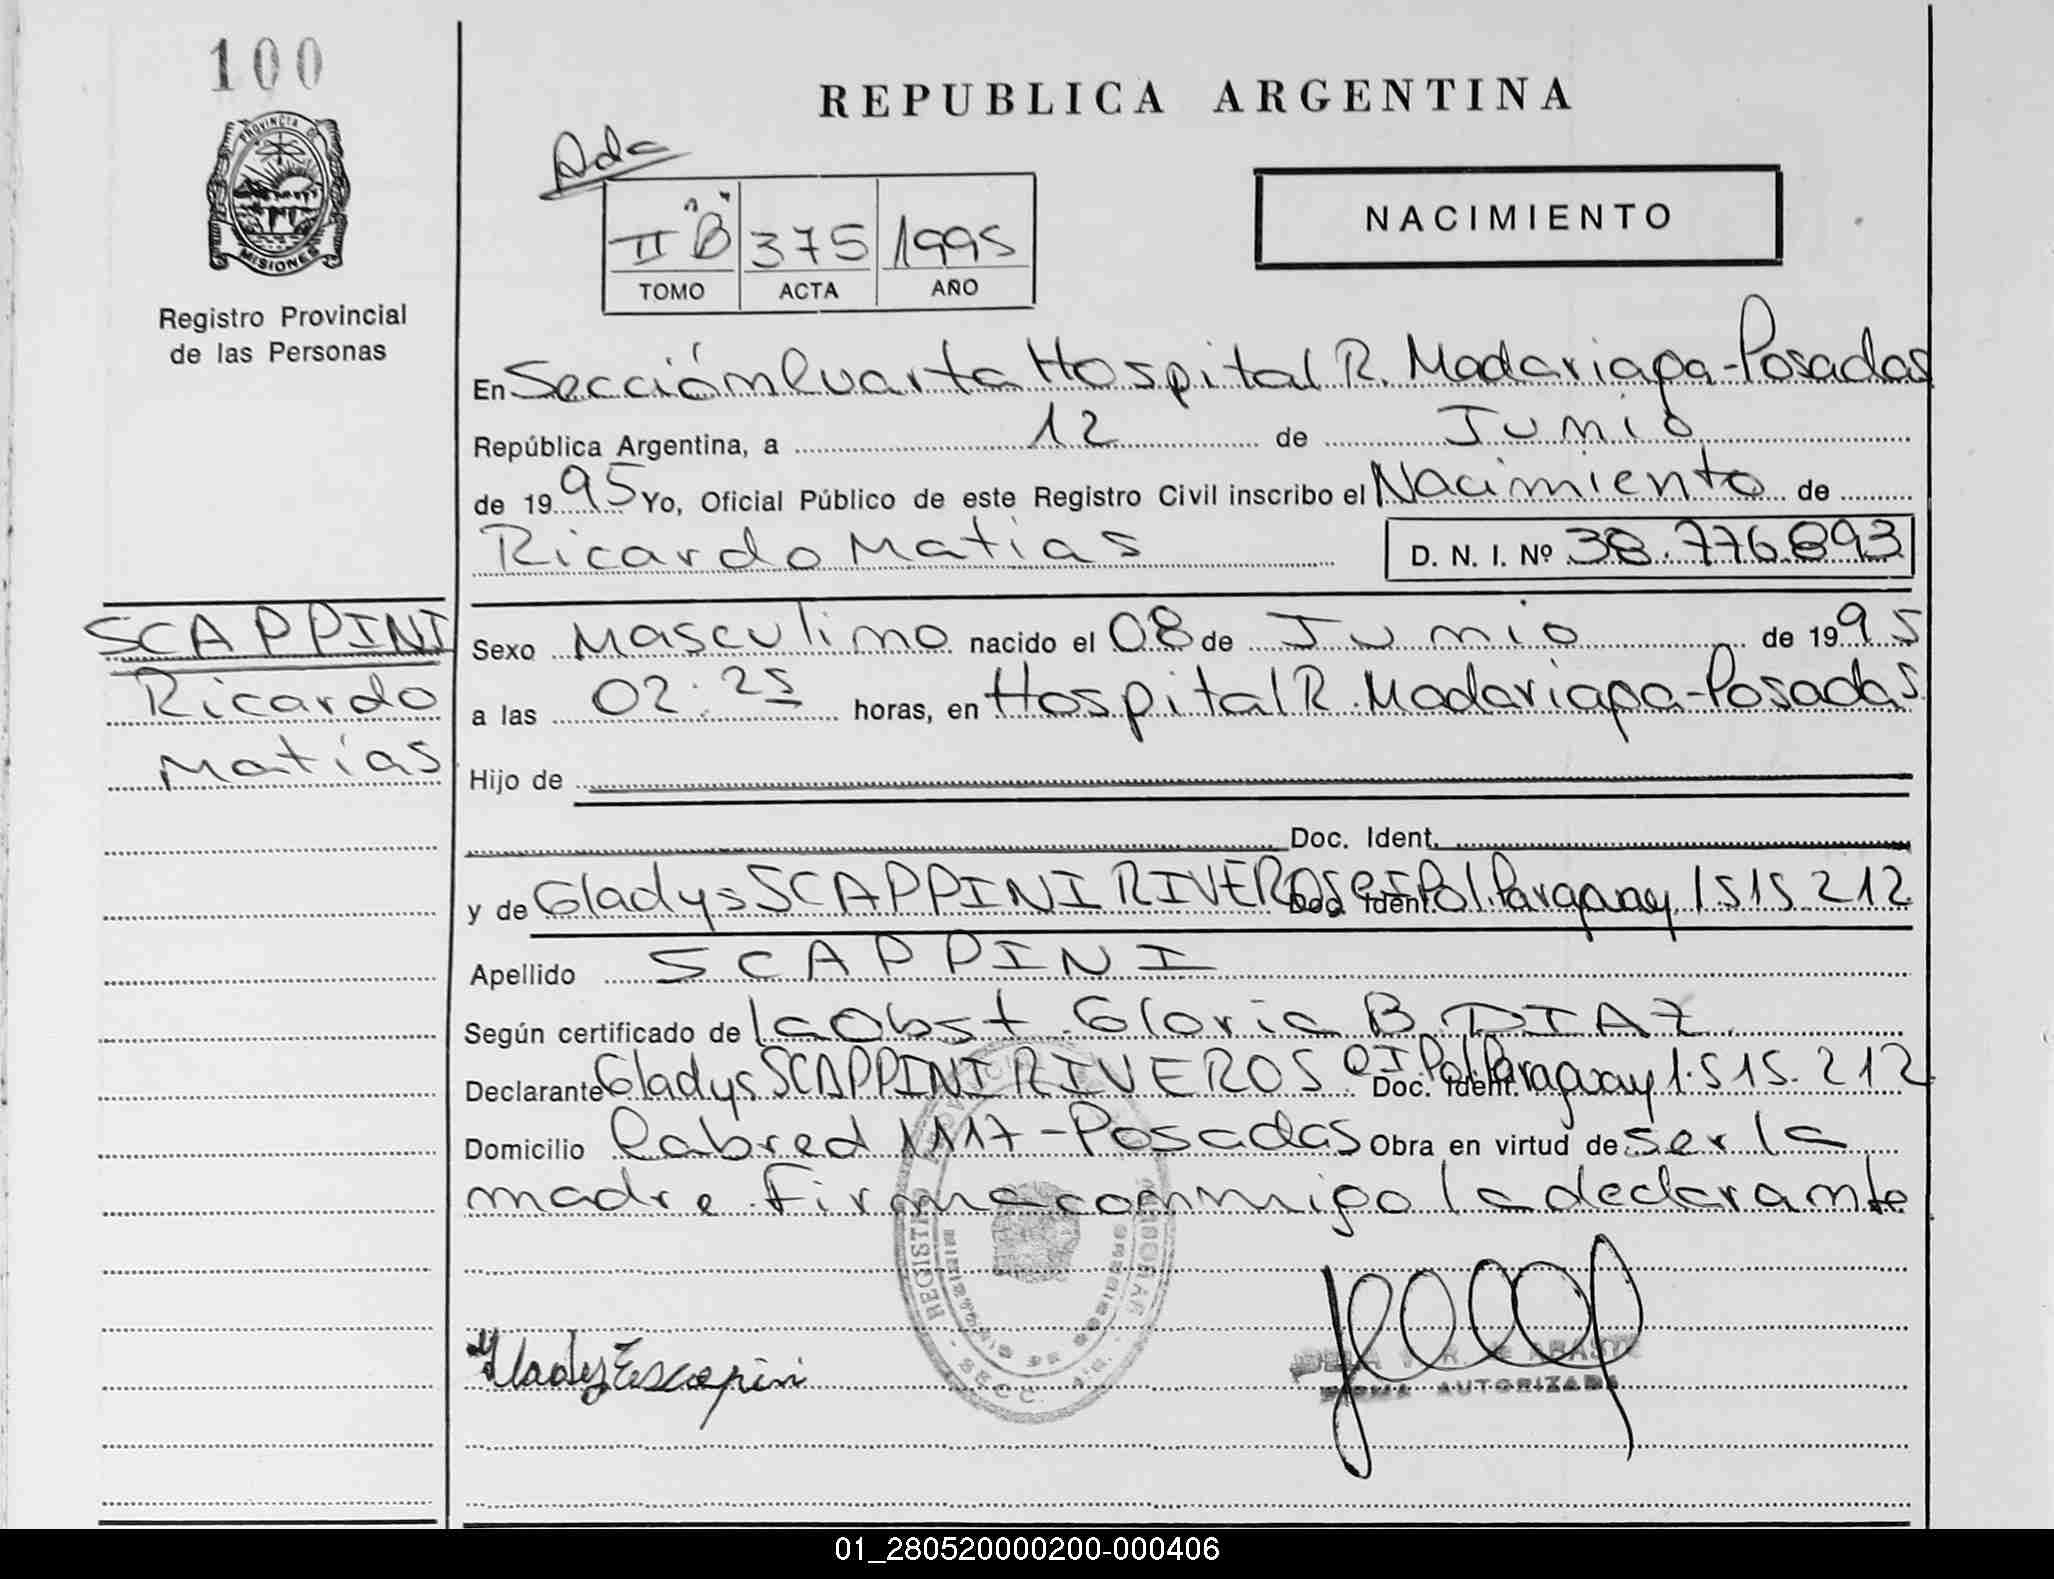 100
PROVINCIA DE
MISIONES
Registro Provincial
de las Personas
REPUBLICA ARGENTINA
Ada
II "B" 375 1995
TOMO ACTA AÑO
NACIMIENTO
En Sección Cuarta Hospital R. Madariaga-Posadas
República Argentina, a 12 de Junio
de 1995 Yo, Oficial Público de este Registro Civil inscribo el Nacimiento de
Ricardo Matías D. N. I. Nº 38.776.893
SCAPPINI
Ricardo
Matías
Sexo Masculino nacido el 08 de Junio de 1995
a las 02:25 horas, en Hospital R. Madariaga-Posadas
Hijo de
Doc. Ident.
y de Gladys SCAPPINI RIVEROS Doc. Ident. CI Pol. Paraguay 1515.212
Apellido SCAPPINI
Según certificado de la Obst. Gloria B. DIAZ
Declarante Gladys SCAPPINI RIVEROS Doc. Ident. CI Pol. Paraguay 1.515.212
Domicilio Cabred 1117-Posadas Obra en virtud de ser la
madre. Firma conmigo la declarante
Gladys Escapini
FIRMA AUTORIZADA
01_280520000200-000406